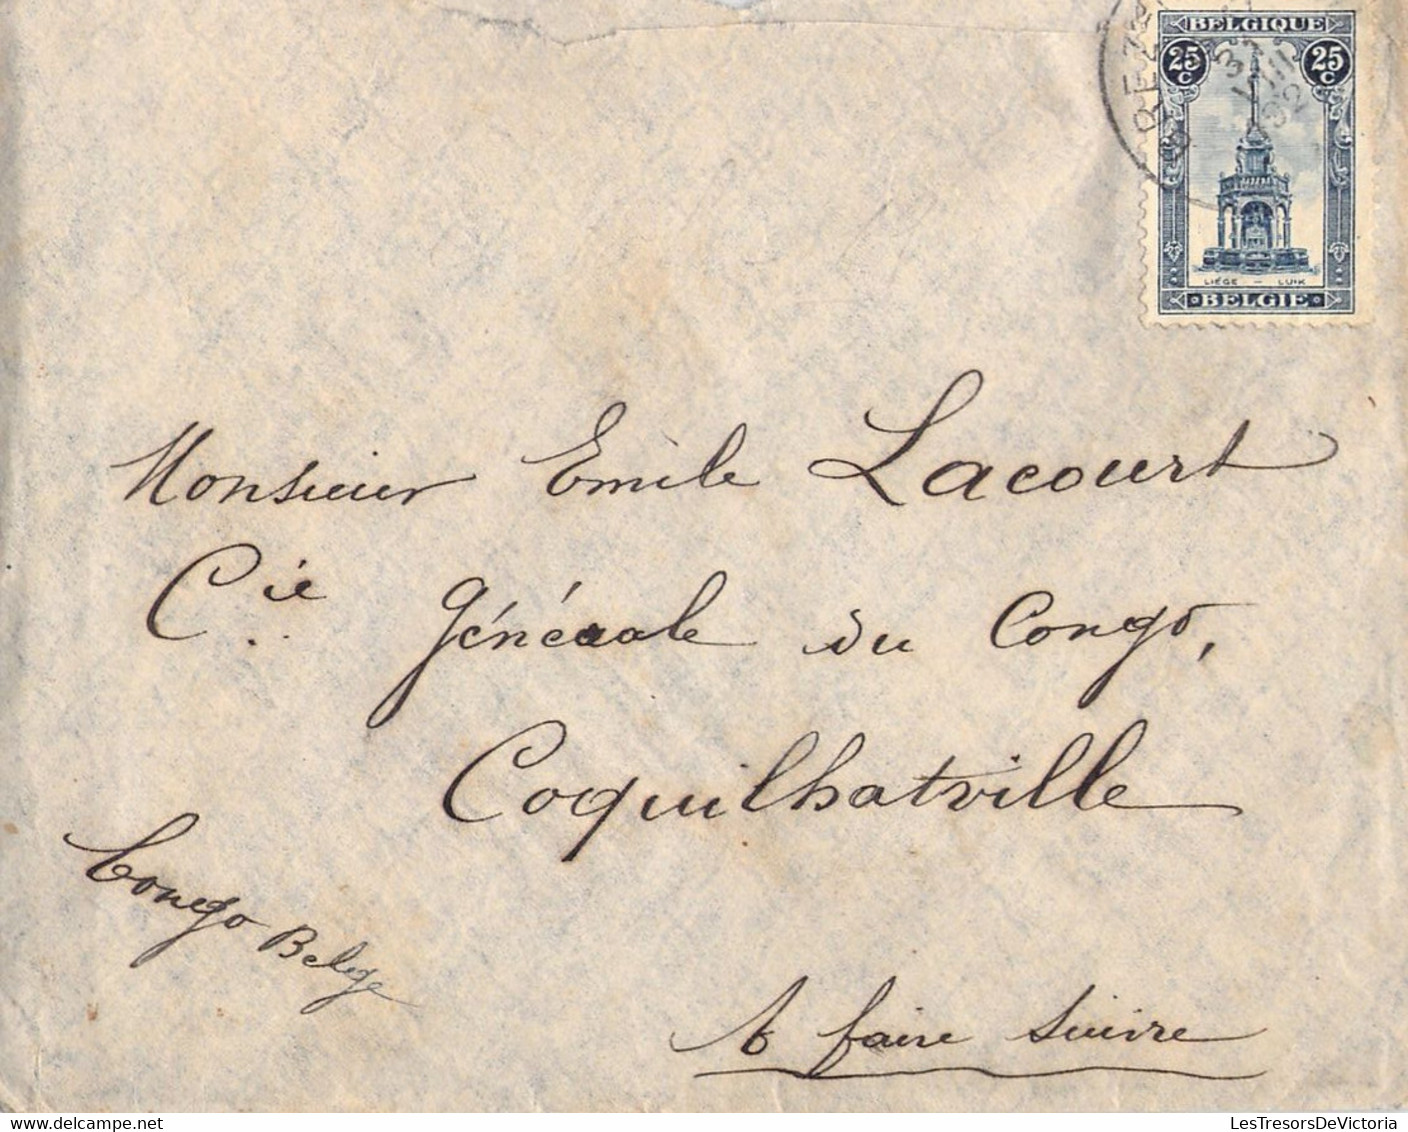 BELGIQUE
25 C 25 C
LIÉGE — LUIK
BELGIE
Monsieur Emile Lacourt
Cie Générale du Congo,
Coquilhatville
Congo Belge
A faire suivre
© LesTresorsDeVictoria